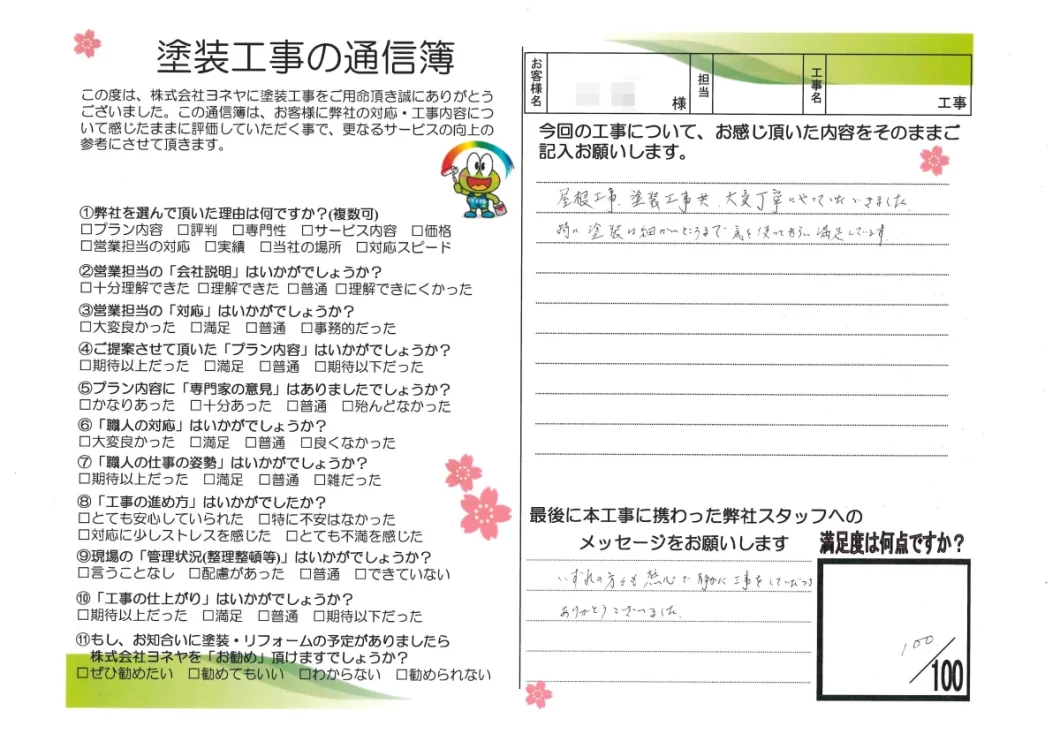 塗装工事の通信簿
この度は、株式会社ヨネヤに塗装工事をご用命頂き誠にありがとう
ございました。この通信簿は、お客様に弊社の対応・工事内容につ
いて感じたままに評価していただく事で、更なるサービスの向上の
参考にさせて頂きます。
①弊社を選んで頂いた理由は何ですか？(複数可)
□プラン内容 □評判 □専門性 □サービス内容 □価格
□営業担当の対応 □実績 □当社の場所 □対応スピード
②営業担当の「会社説明」はいかがでしょうか？
□十分理解できた □理解できた □普通 □理解できにくかった
③営業担当の「対応」はいかがでしょうか？
□大変良かった □満足 □普通 □事務的だった
④ご提案させて頂いた「プラン内容」はいかがでしょうか？
□期待以上だった □満足 □普通 □期待以下だった
⑤プラン内容に「専門家の意見」はありましたでしょうか？
□かなりあった □十分あった □普通 □殆んどなかった
⑥「職人の対応」はいかがでしょうか？
□大変良かった □満足 □普通 □良くなかった
⑦「職人の仕事の姿勢」はいかがでしょうか？
□期待以上だった □満足 □普通 □雑だった
⑧「工事の進め方」はいかがでしたか？
□とても安心していられた □特に不安はなかった
□対応に少しストレスを感じた □とても不満を感じた
⑨現場の「管理状況(整理整頓等)」はいかがでしょうか？
□言うことなし □配慮があった □普通 □できていない
⑩「工事の仕上がり」はいかがでしょうか？
□期待以上だった □満足 □普通 □期待以下だった
⑪もし、お知合いに塗装・リフォームの予定がありましたら
株式会社ヨネヤを「お勧め」頂けますでしょうか？
□ぜひ勧めたい □勧めてもいい □わからない □勧められない
お客様名 様 担当 工事名 工事
今回の工事について、お感じ頂いた内容をそのままご
記入お願いします。
屋根工事、塗装工事共、大変丁寧にやっていただきました。
特に塗装は細かいところまで気を使ってもらい満足しています。
最後に本工事に携わった弊社スタッフへの
メッセージをお願いします
いずれの方々も熱心で静かに工事をしていただき
ありがとうございました。
満足度は何点ですか？
100/100